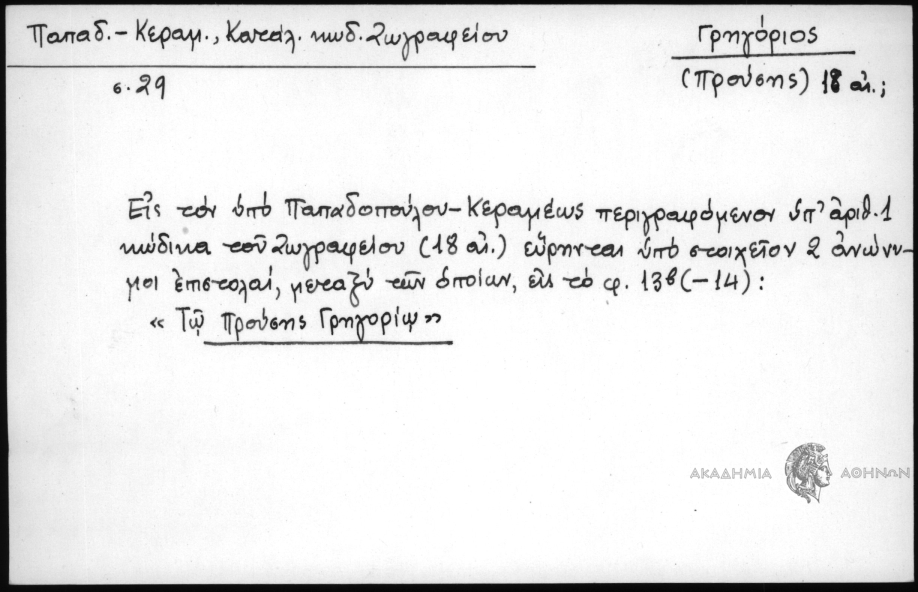 Παπαδ.-Κεραμ., Κατάλ. κωδ. Ζωγραφείου
Γρηγόριος
σ. 29
(Προύσης) 18 αἰ.;
Εἰς τόν ὑπό Παπαδοπούλου-Κεραμέως περιγραφόμενον ὑπ' ἀριθ. 1
κώδικα τοῦ Ζωγραφείου (18 αἰ.) εὕρηνται ὑπό στοιχεῖον 2 ἀνώνυ-
μοι ἐπιστολαί, μεταξύ τῶν ὁποίων, εἰς τό φ. 13β (-14) :
« Τῷ Προύσης Γρηγορίῳ »
ΑΚΑΔΗΜΙΑ ΑΘΗΝΩΝ